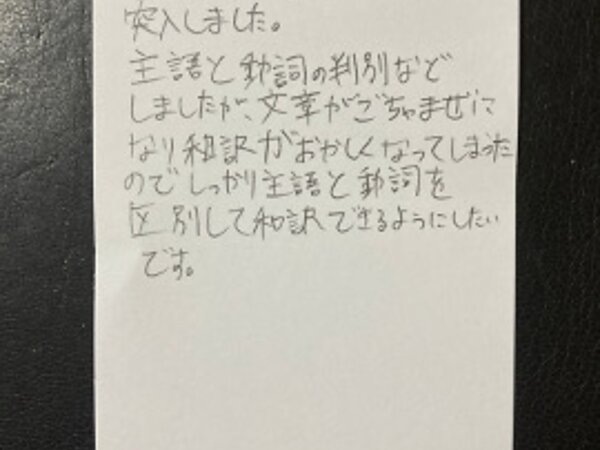 突入しました。
主語と動詞の判別など
しましたが、文章がごちゃまぜに
なり和訳がおかしくなってしまった
のでしっかり主語と動詞を
区別して和訳できるようにしたい
です。